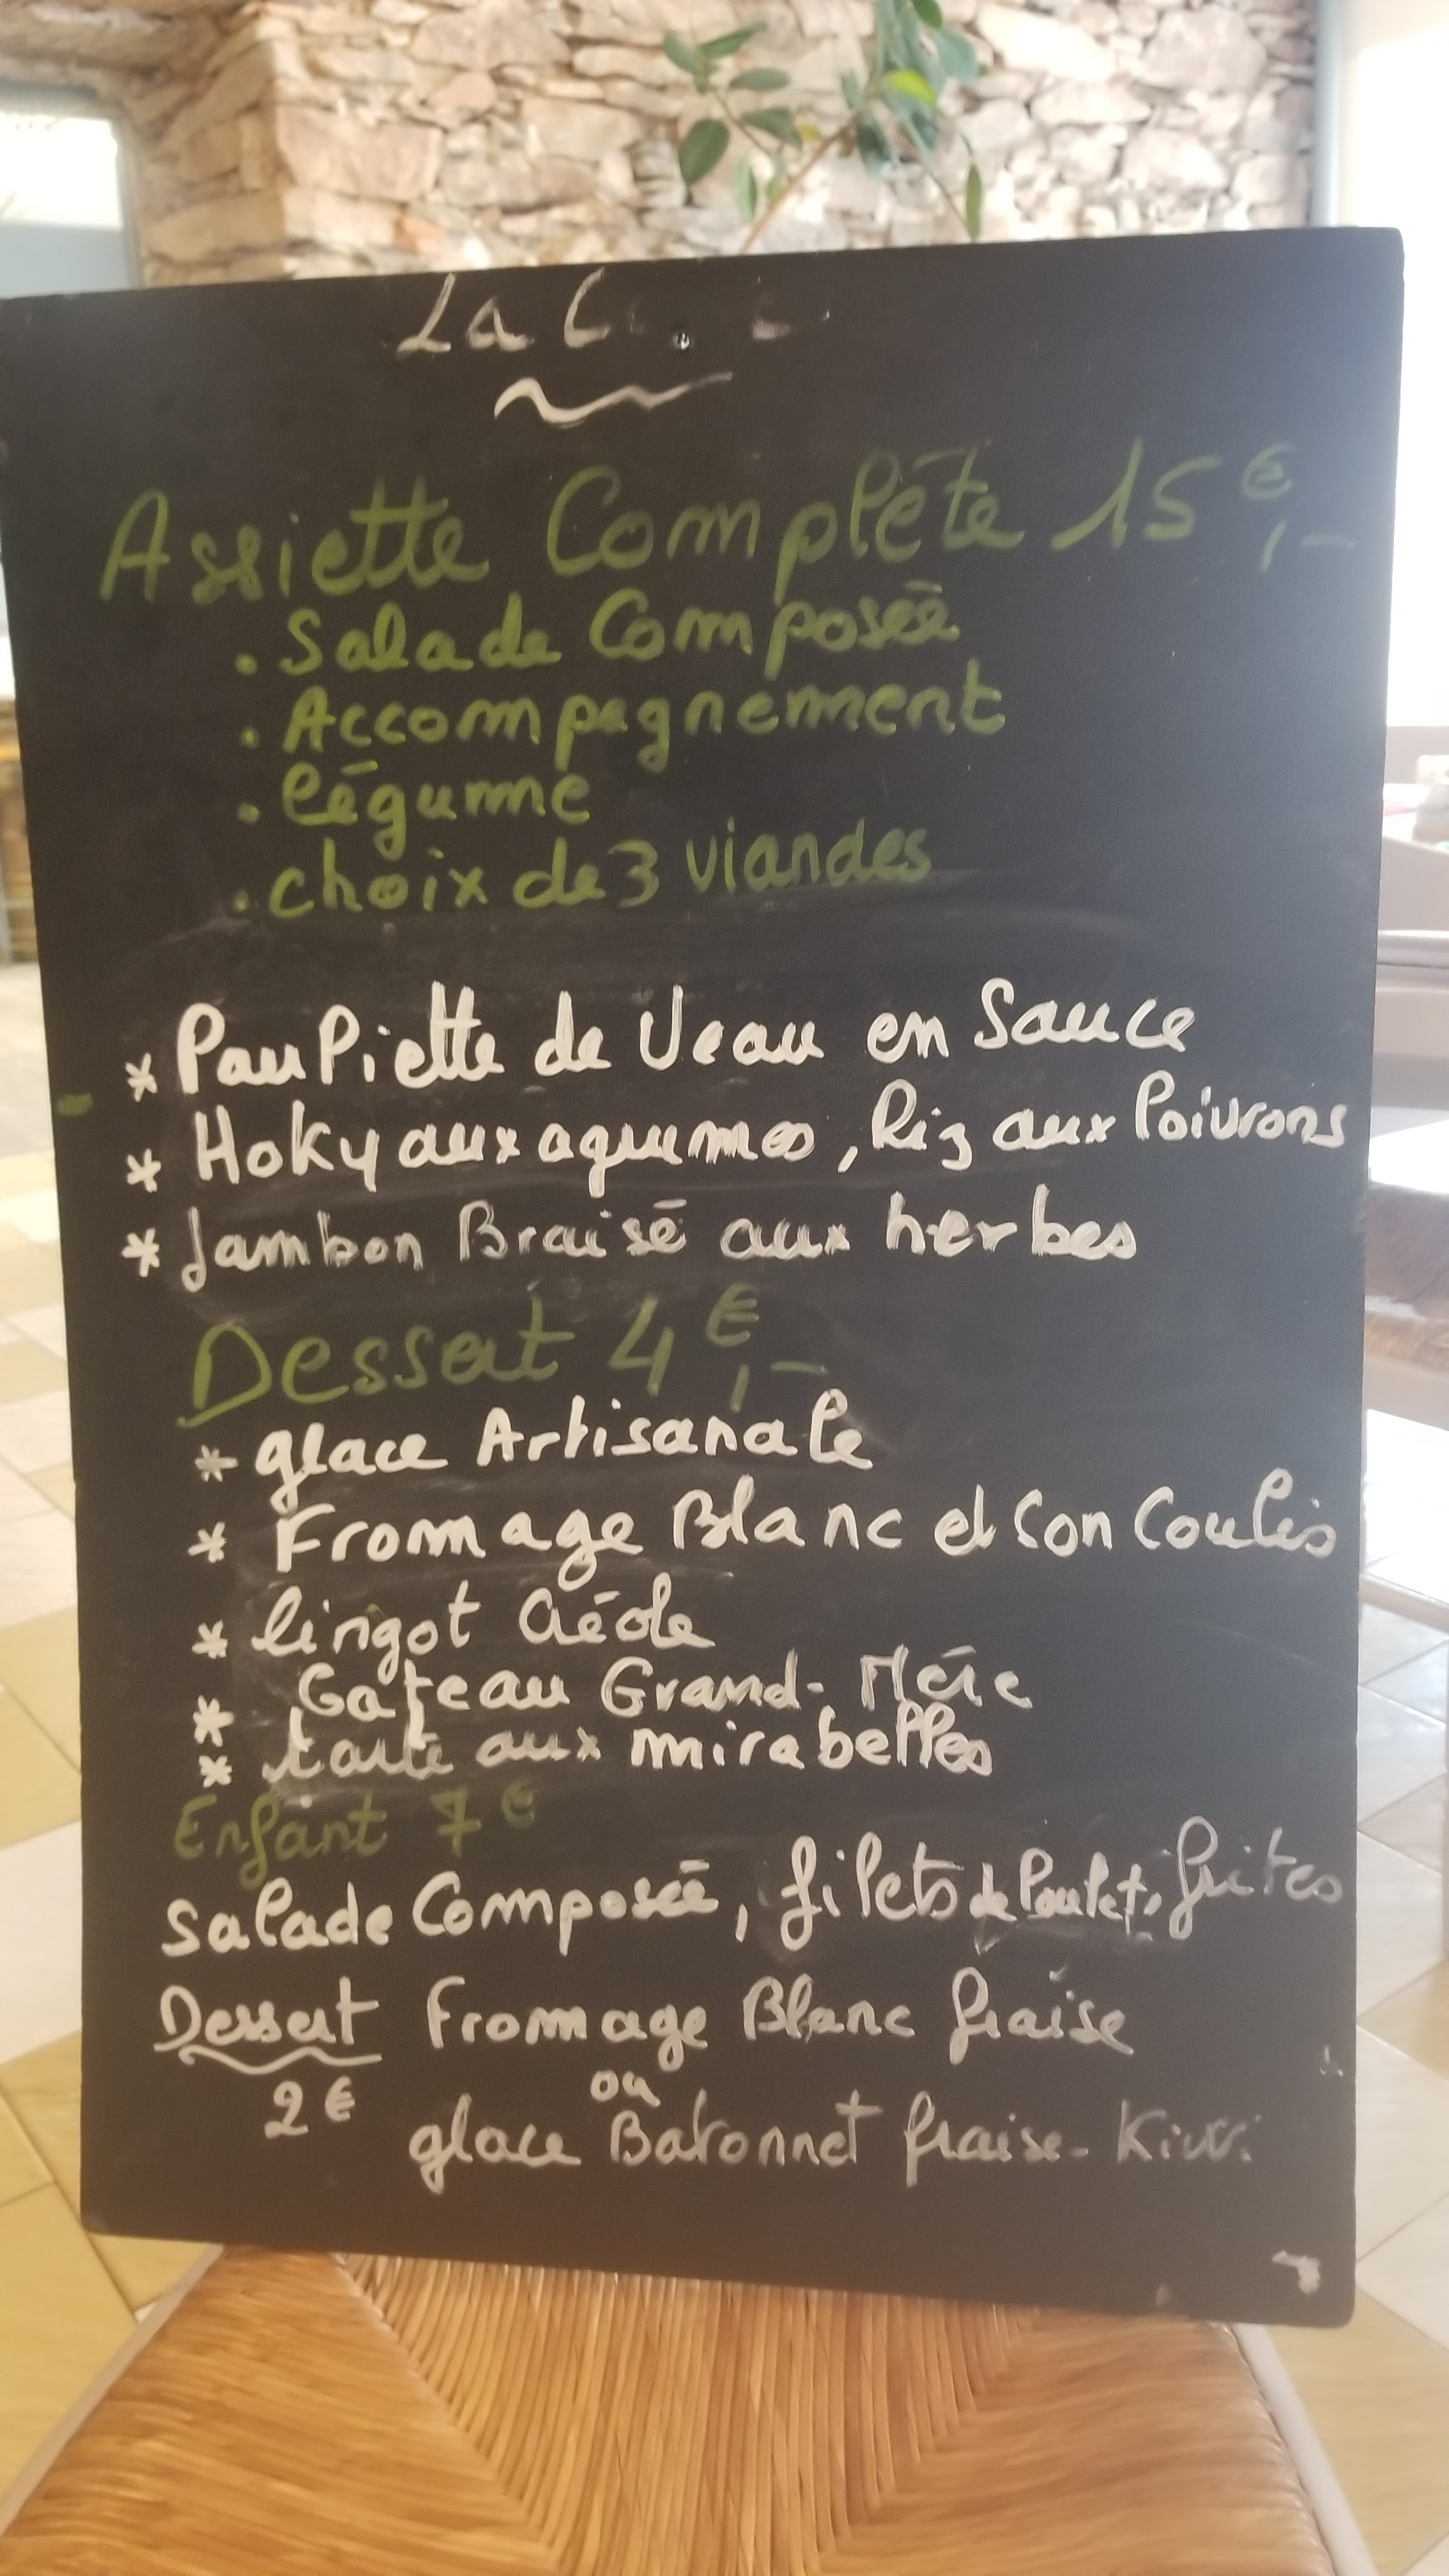 La
Assiette Complète 15€,-
. Salade Composée
. Accompagnement
. légume
. choix de 3 viandes
* PauPiette de Veau en Sauce
* Hoky aux agrumes, Riz aux Poivrons
* Jambon Braisé aux herbes
Dessert 4€,-
* glace Artisanale
* Fromage Blanc et son Coulis
* lingot Créole
* Gateau Grand-Mère
* tarte aux mirabelles
Enfant 7€
Salade Composée, filets de Poulet, frites
Dessert Fromage Blanc fraise
2€ ou
glace Batonnet fraise-Kiwi